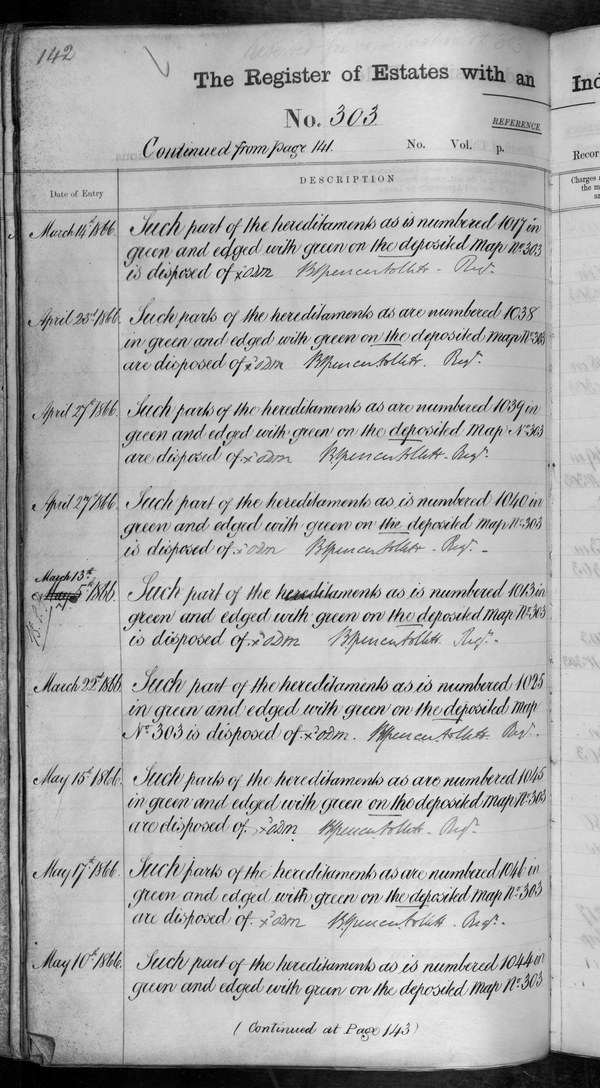 142
The Register of Estates with an
Ind
No. 303
REFERENCE.
Continued from page 141.
No. Vol. p.
Recor
Date of Entry
DESCRIPTION
Charges a
the m
an
March 14th 1866. Such part of the hereditaments as is numbered 1017 in
green and edged with green on the deposited Map No. 303
is disposed of. Regr.
April 23rd 1866. Such parts of the hereditaments as are numbered 1038
in green and edged with green on the deposited Map No. 303
are disposed of. Regr.
April 27th 1866. Such parts of the hereditaments as are numbered 1039 in
green and edged with green on the deposited Map No. 303
are disposed of. Regr.
April 27th 1866. Such part of the hereditaments as is numbered 1040 in
green and edged with green on the deposited Map No. 303
is disposed of. Regr.
March 13th
May 5th 1866. Such part of the hereditaments as is numbered 1013 in
green and edged with green on the deposited Map No. 303
is disposed of. Regr.
March 22nd 1866. Such part of the hereditaments as is numbered 1025
in green and edged with green on the deposited Map
No. 303 is disposed of. Regr.
May 15th 1866. Such parts of the hereditaments as are numbered 1045
in green and edged with green on the deposited Map No. 303
are disposed of. Regr.
May 17th 1866. Such parts of the hereditaments as are numbered 1046 in
green and edged with green on the deposited Map No. 303
are disposed of. Regr.
May 10th 1866. Such part of the hereditaments as is numbered 1044 in
green and edged with green on the deposited Map No. 303
(Continued at Page 143)